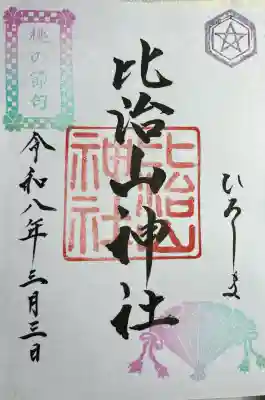 桃の節句
ひろしま
比治山神社
比治山
神社
令和八年三月三日